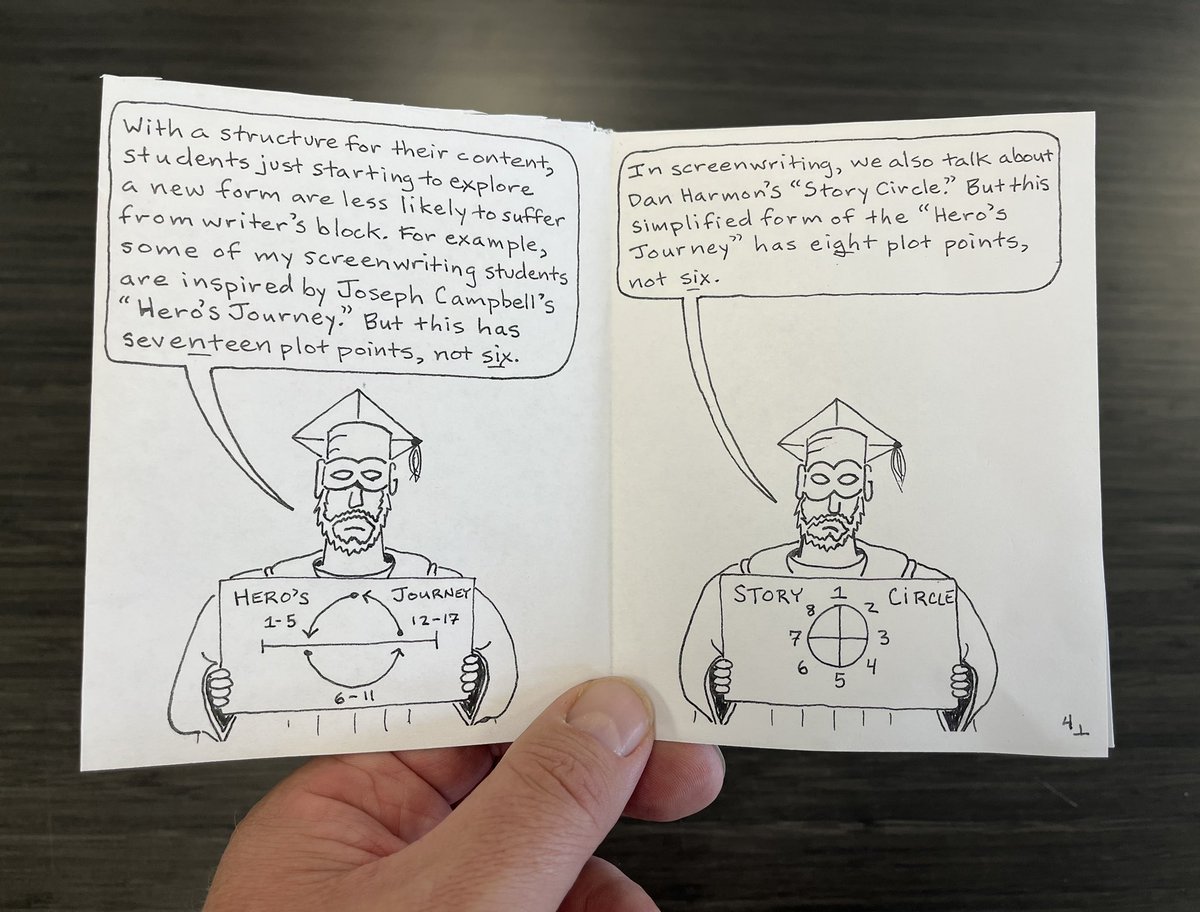 With a structure for their content,
students just starting to explore
a new form are less likely to suffer
from writer's block. For example,
some of my screenwriting students
are inspired by Joseph Campbell's
"Hero's Journey." But this has
seventeen plot points, not six.
HERO'S JOURNEY
1-5 12-17
6-11
In screenwriting, we also talk about
Dan Harmon's "Story Circle." But this
simplified form of the "Hero's
Journey" has eight plot points,
not six.
STORY CIRCLE
1
8 2
7 3
6 4
5
4